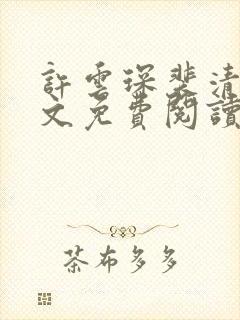 許雲琛裴清
文免費閱讀
茶布多多